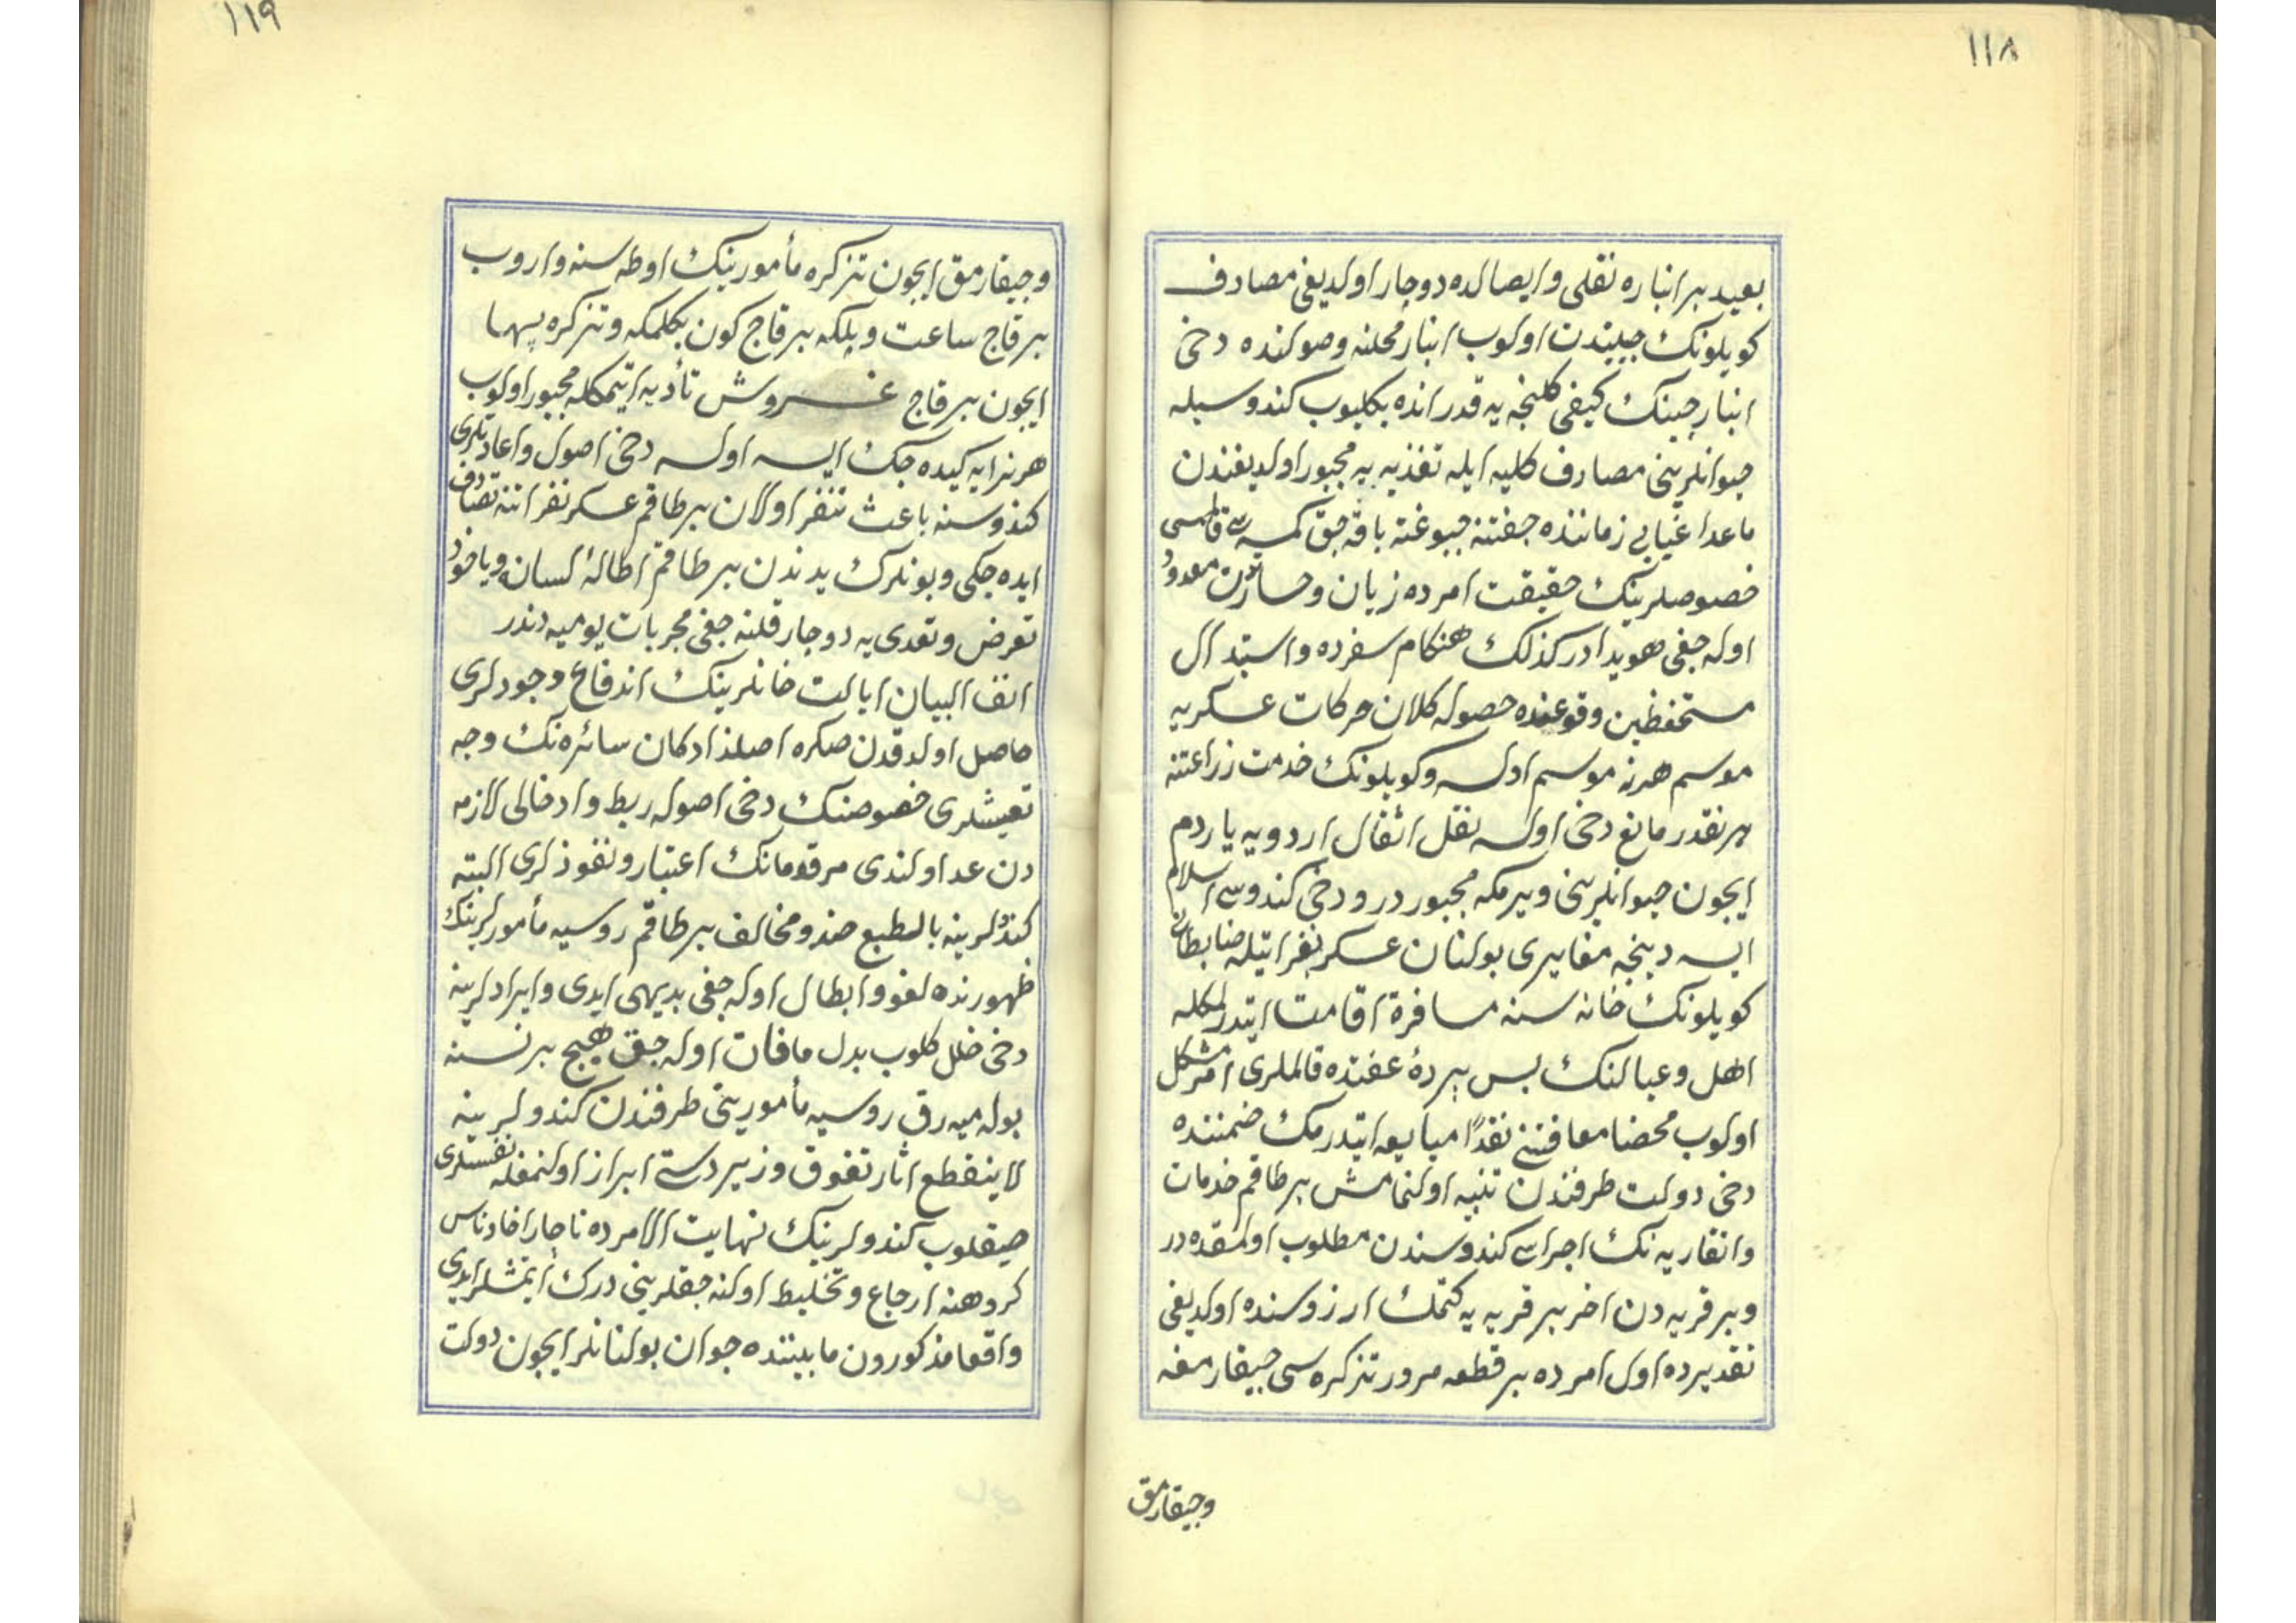 ١١٨
بعید بر انباره نقلی و ایصالده دوچار اولدیغی مصارف
کویلونك جیبندن اولوب انبار محلنه وصولنده دخی
انبارجینك کیفی کلنجه یه قدر انده بکلیوب کندوسیله
حیوانلرینی مصارف کلیه ایله تغذیه یه مجبور اولدیغندن
ماعدا غیابی زماننده جفتنه جبوغنه باقه جق کمسه سی قالمسی
خصوصلرینك حقیقت امرده زیان و خسارتدن معدود
اوله جغی هویدادر کذلك هنکام سفرده و استبدال
مستحفظین وقوعنده حصوله کلان حرکات عسکریه
موسم هر نه موسم اولسه و کویلونك خدمت زراعتنه
هر نقدر مانع دخی اولسه نقل اثقال اردویه یاردم
ایچون حیوانلرینی ویرمکه مجبوردر و دخی کندوسی اسلام
ایسه دینجه مغایری بولنان عسکر نفراتیله ضابطانی
کویلونك خانه سنه مسافرة اقامت ایتدرلمکله
اهل و عیالنك پس پردۀ عفتده قالملری امر مشکل
اولوب محضا معافیتنی نقدًا مبایعه ایتدرمك ضمننده
دخی دولت طرفندن تنبیه اولنمامش بر طاقم خدمات
و انقاریه نك اجراسی کندوسندن مطلوب اولمقده در
و بر قریه دن اخر بر قریه یه کتمك ارزوسنده اولدیغی
تقدیرده اول امرده بر قطعه مرور تذکره سی جیقارمغه
وجیقارمق
١١٩
وجیقارمق ایچون تذکره مأمورینك اوطه سنه واروب
بر قاج ساعت و بلکه بر قاج کون بکلمکه و تذکره بها
ایچون بر قاج غروش تأدیه ایتمکله مجبور اولوب
هر نرایه کیده جك ایسه اولسه دخی اصول و اعادتلری
کندوسنه باعث تنفر اولان بر طاقم عسکر نفراتنه تصادف
ایده جکی و بونلرك یدندن بر طاقم اطالۀ لسان و یاخود
تعرض و تعدی یه دوچار قلنه جغی مجربات یومیه دندر
انف البیان ایالت خانلرینك اندفاع وجودلری
حاصل اولدقدن صکره اصلزادکان سائره نك وجه
تعیشلری خصوصنك دخی اصوله ربط و ادخالی لازمه
دن عد اولندی مرقومانك اعتبار و نفوذلری البته
کندولرینه بالطبع ضد و مخالف بر طاقم روسیه مأمورلرینك
ظهورنده لغو و ابطال اوله جغی بدیهی ایدی و ایرادلرینه
دخی خلل کلوب بدل مافات اوله جق هیچ بر نسنه
بوله میه رق روسیه مأمورینی طرفندن کندولرینه
لاینقطع اثار تفوق و زبردستی ابراز اولنمغله نفسلری
صیقلوب کندولرینك نهایت الامرده ناچار احاد ناس
کروهنه ارجاع و تخلیط اولنه جقلرینی درك ایتمشلر ایدی
واقعا مذکورون مابیننده جوان بولنانلر ایچون دولت